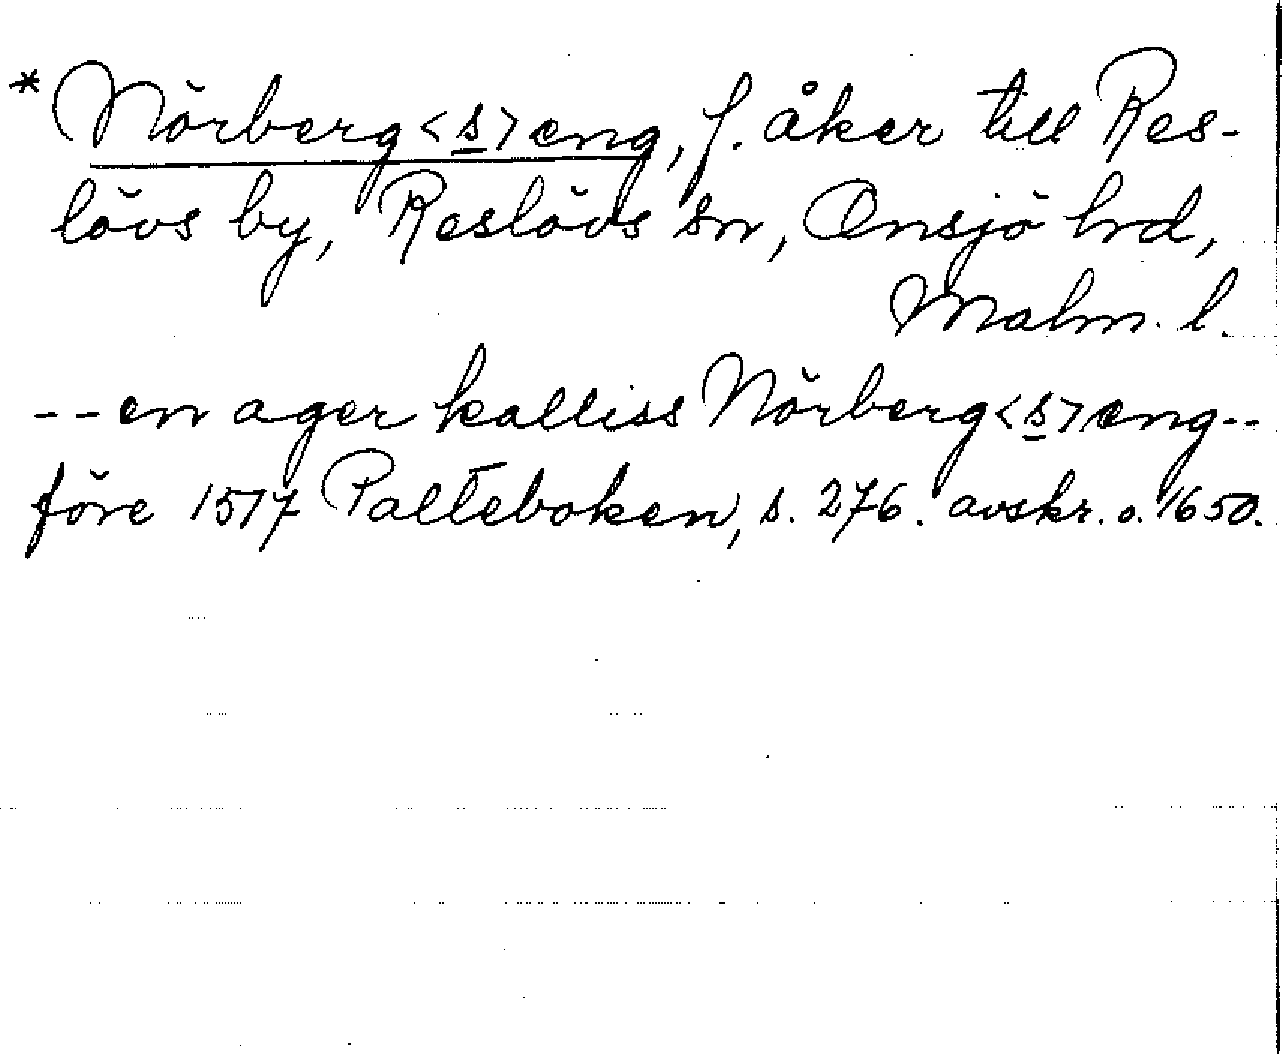 * Nörberg<s>eng, f. åker till Res-
lövs by, Reslövs sn, Onsjö hrd,
Malm. l.
--en ager kalliss Nörberg<s>eng--
före 1517 Palteboken, s. 276. avskr. o. 1650.